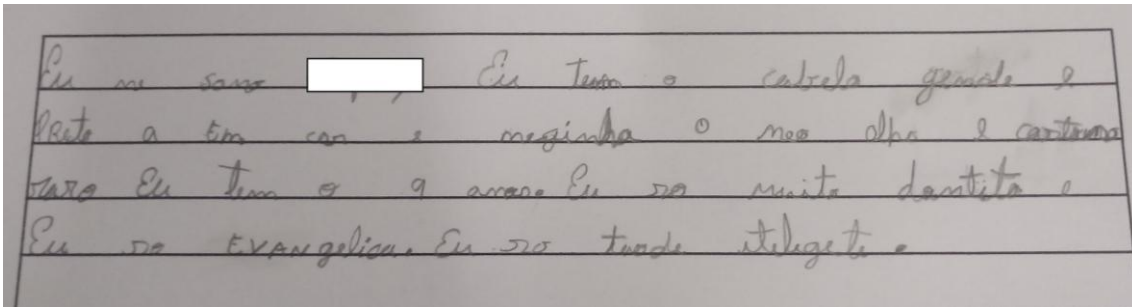 Eu me samo Eu Tem o cabela gande e
Preto a tm con e mozinha o meo olho e cantanma
raro Eu Tem o 9 anno. Eu so muito dantito e
Eu so EVANgelica. Eu so tinode iteligete.